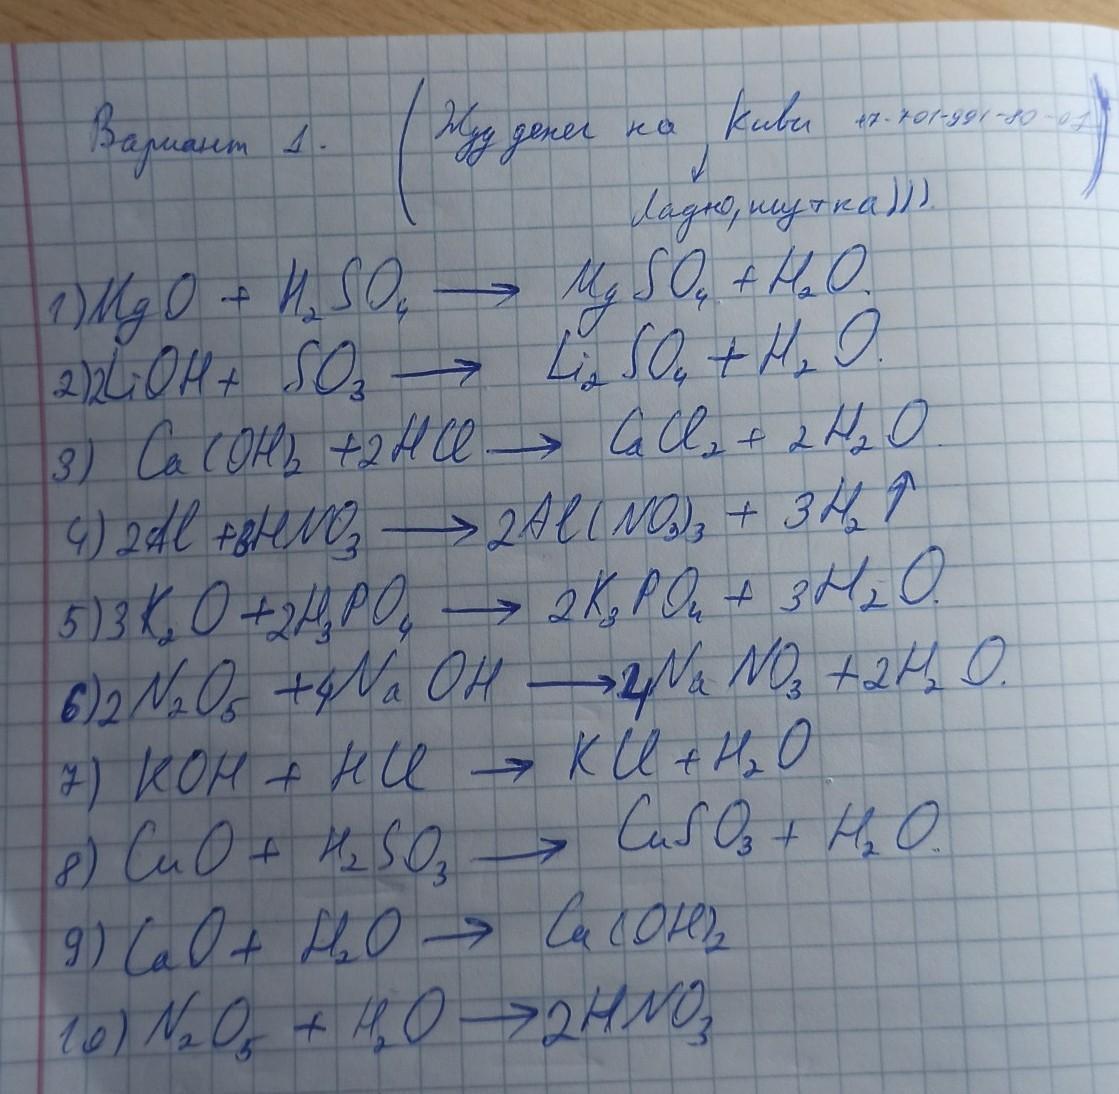 Вариант 1. (Жду денег на Киви +7-701-991-80-07)
↓
Ладно, шутка)))
1) MgO + H₂SO₄ → MgSO₄ + H₂O.
2) 2LiOH + SO₃ → Li₂SO₄ + H₂O.
3) Ca(OH)₂ + 2HCl → CaCl₂ + 2H₂O.
4) 2Al + 6HNO₃ → 2Al(NO₃)₃ + 3H₂↑
5) 3K₂O + 2H₃PO₄ → 2K₃PO₄ + 3H₂O.
6) 2N₂O₅ + 4NaOH → 4NaNO₃ + 2H₂O.
7) KOH + HCl → KCl + H₂O
8) CuO + H₂SO₃ → CuSO₃ + H₂O.
9) CaO + H₂O → Ca(OH)₂
10) N₂O₅ + H₂O → 2HNO₃